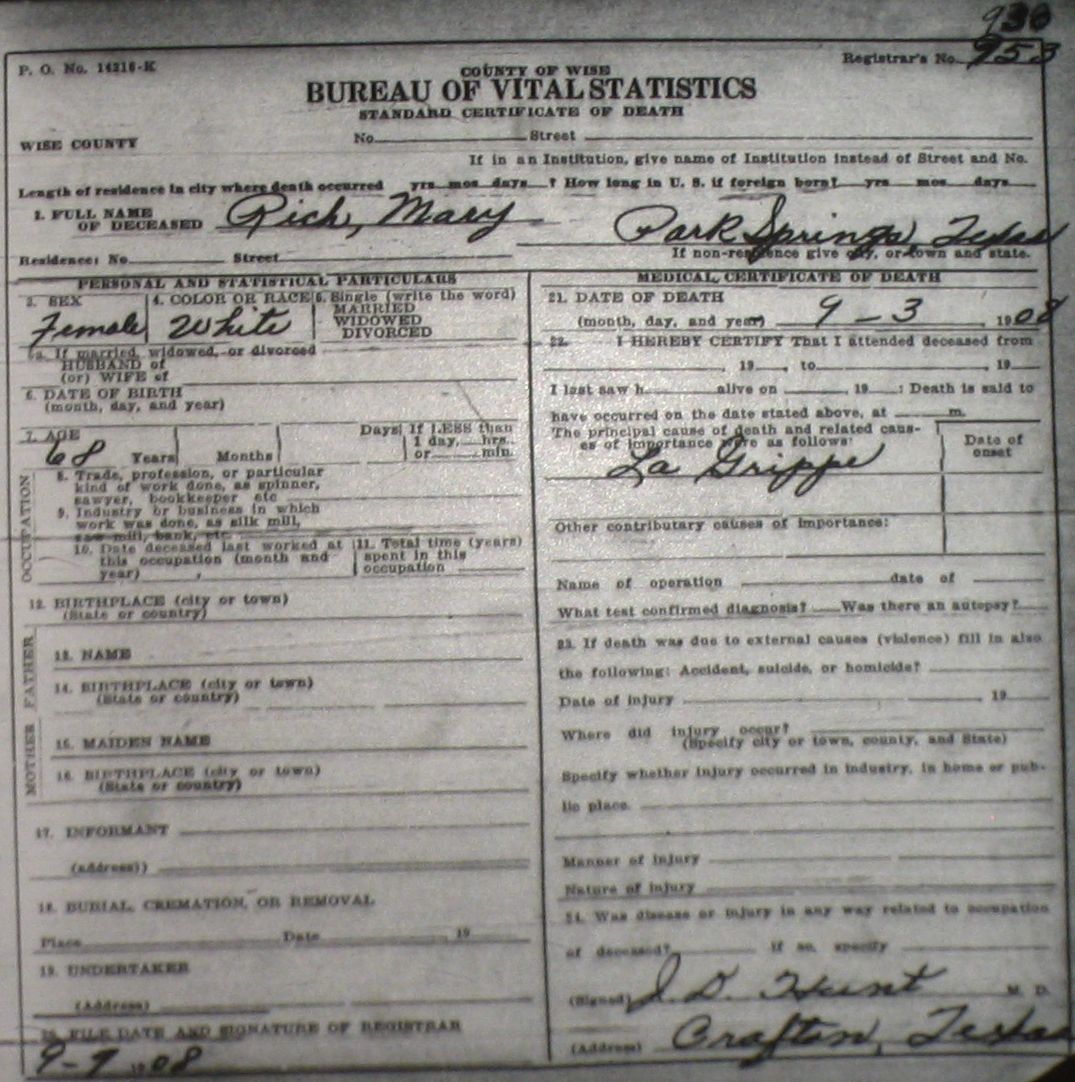 930
P. O. No. 14216-K
COUNTY OF WISE
Registrar's No. 953
BUREAU OF VITAL STATISTICS
STANDARD CERTIFICATE OF DEATH
WISE COUNTY
No. Street
If in an Institution, give name of Institution instead of Street and No.
Length of residence in city where death occurred yrs mos days ? How long in U. S. if foreign born? yrs mos days
1. FULL NAME OF DECEASED Rich, Mary
Park Springs, Texas
Residence: No. Street
If non-residence give city, or town and state.
PERSONAL AND STATISTICAL PARTICULARS
3. SEX
Female
4. COLOR OR RACE
White
5. Single (write the word)
MARRIED
WIDOWED
DIVORCED
5a. If married, widowed, or divorced
HUSBAND of
(or) WIFE of
6. DATE OF BIRTH
(month, day, and year)
7. AGE Days If LESS than
68 Years Months 1 day, hrs.
or min.
OCCUPATION
8. Trade, profession, or particular
kind of work done, as spinner,
sawyer, bookkeeper etc
9. Industry or business in which
work was done, as silk mill,
saw mill, bank, etc.
10. Date deceased last worked at
this occupation (month and
year) ,
11. Total time (years)
spent in this
occupation
12. BIRTHPLACE (city or town)
(State or country)
FATHER
13. NAME
14. BIRTHPLACE (city or town)
(State or country)
MOTHER
15. MAIDEN NAME
16. BIRTHPLACE (city or town)
(State or country)
17. INFORMANT
(address))
18. BURIAL, CREMATION, OR REMOVAL
Place Date 19
19. UNDERTAKER
(Address)
20. FILE DATE AND SIGNATURE OF REGISTRAR
9-9 1908
MEDICAL CERTIFICATE OF DEATH
21. DATE OF DEATH
(month, day, and year) 9-3 1908
22. I HEREBY CERTIFY That I attended deceased from
, 19 , to , 19
I last saw h alive on , 19 : Death is said to
have occurred on the date stated above, at m.
The principal cause of death and related causes of importance were as follows:
Date of onset
La Grippe
Other contributary causes of importance:
Name of operation date of
What test confirmed diagnosis? Was there an autopsy?
23. If death was due to external causes (violence) fill in also
the following: Accident, suicide, or homicide?
Date of injury 19
Where did injury occur?
(Specify city or town, county, and State)
Specify whether injury occurred in industry, in home or pub-
lic place.
Manner of injury
Nature of injury
24. Was disease or injury in any way related to occupation
of deceased? if so, specify
(Signed) J. D. Hunt M. D.
(Address) Crafton, Texas